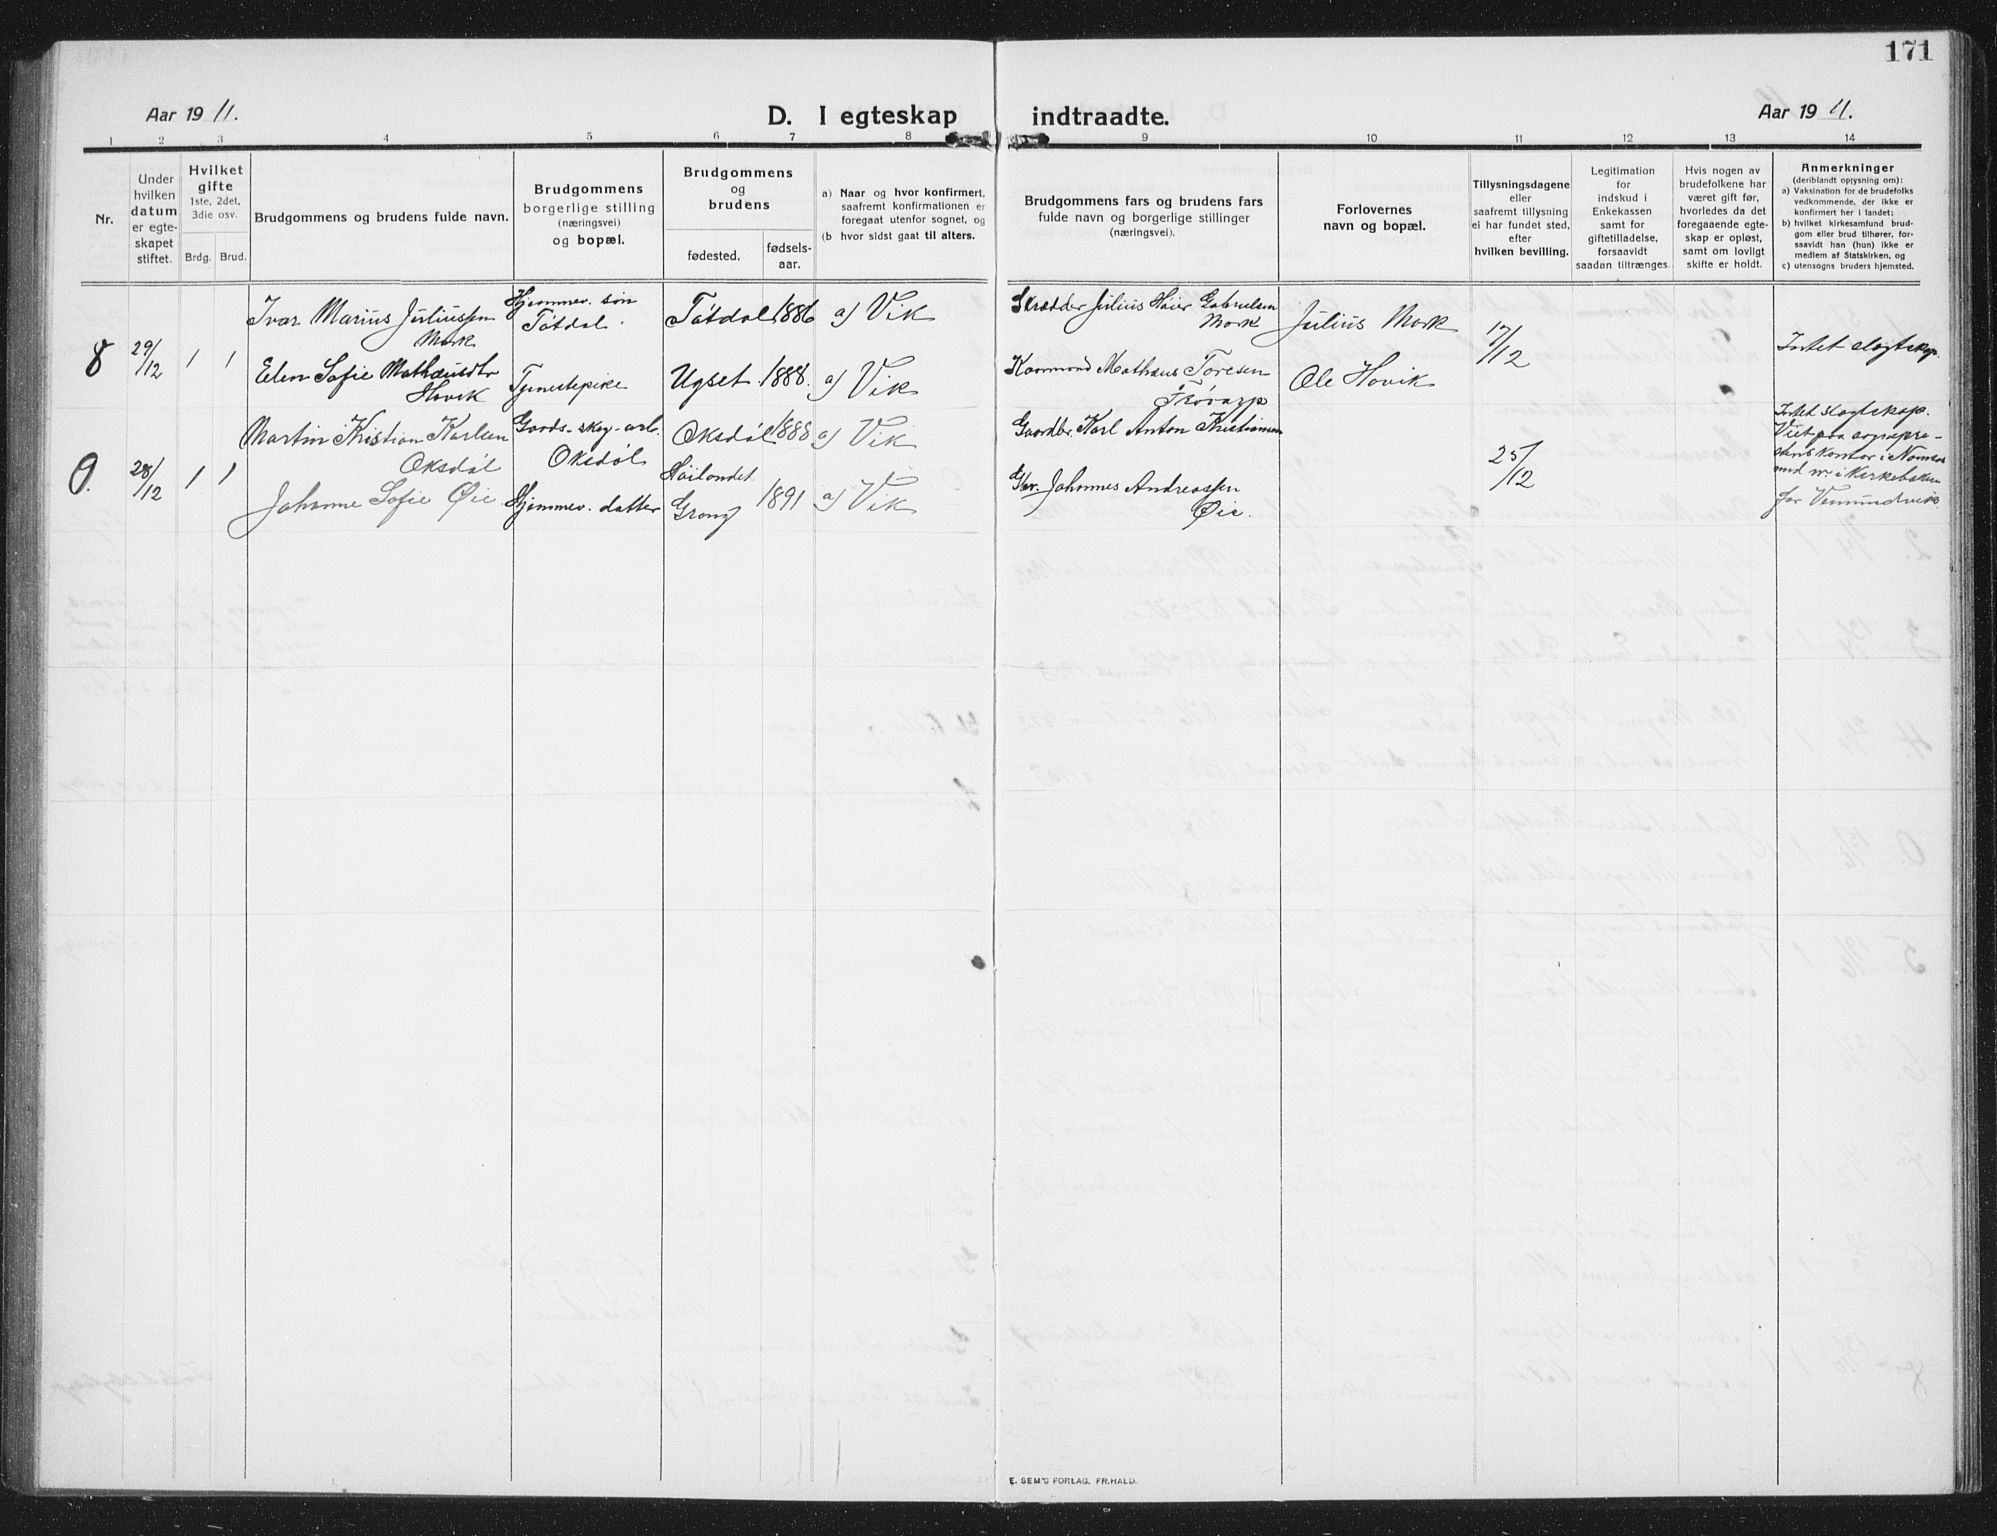 171
Aar 1911.
D. I egteskap indtraadte.
Aar 1911.
1 2 3 4 5 6 7 8 9 10 11 12 13 14
Nr.
Under
hvilken
datum
er egte-
skapet
stiftet.
Hvilket
gifte
1ste, 2det,
3die osv.
Brdg. Brud.
Brudgommens og brudens fulde navn.
Brudgommens
borgerlige stilling
(næringsvei)
og bopæl.
Brudgommens
og
brudens
fødested.
fødsels-
aar.
a) Naar og hvor konfirmert,
saafremt konfirmationen er
foregaat utenfor sognet, og
(b hvor sidst gaat til alters.
Brudgommens fars og brudens fars
fulde navn og borgerlige stillinger
(næringsvei).
Forlovernes
navn og bopæl.
Tillysningsdagene
eller
saafremt tillysning
ei har fundet sted,
efter
hvilken bevilling.
Legitimation
for
indskud i
Enkekassen
samt for
giftetilladelse,
forsaavidt
saadan tiltrænges.
Hvis nogen av
brudefolkene har
været gift før,
hvorledes da det
foregaaende egte-
skap er opløst,
samt om lovligt
skifte er holdt.
Anmerkninger
(deriblandt opjysning om):
a) Vaksination for de brudefolks
vedkommende, der ikke er
konfirmert her i landet;
b) hvilket kirkesamfund brud-
gom eller brud tilhører, for-
saavidt han (hun) ikke er
medlem af Statskirken, og
c) utensogns bruders hjemsted.
8 29/12 1 1
Ivar Marius Juliussen
Mork
Hjemmev. søn
Tøtdal.
Tøtdal 1886 a) Vik
Skrædder Julius Høier Gabrielsen
Mork
Julius Mork
17/12
Intet slegtskap.
Elen Sofie Mathæusdtr
Hovik
Tjenestepike
Ugset 1888 a) Vik
Kaarmand Mathæus Toresen
Ole Hovik
9. 28/12 1 1
Martin Kristian Karlsen
Oksdøl
Gaards- skog- arb.
Oksdøl
Oksdøl 1888 a) Vik
Gaardbr. Karl Anton Kristiansen
25/12
Intet slegtskap.
Viet paa sognepre-
stens kontor i Namsos
for Vemundvik.
Johanne Sofie Øie
Hjemmev. datter
Høilandet
Grong 1891 a) Vik
Gbr. Johannes Andreassen
Øie.
E. SEM'S FORLAG, FR.HALD.